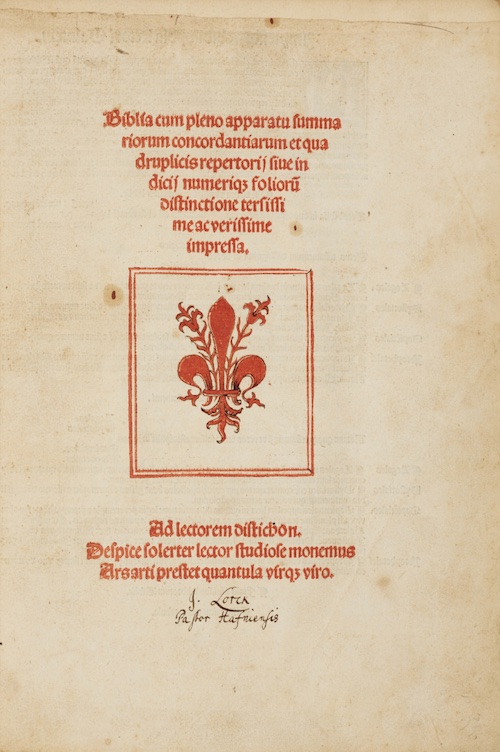 Biblia cum pleno apparatu summa
riorum concordantiarum et qua
druplicis repertorij siue in
dicij numeriqꝫ foliorū
distinctione tersissi
me ac verissime
impressa.
Ad lectorem distichon.
Despice solerter lector studiose monemus
Ars arti prestet quantula virqꝫ viro.
J. Lorck
Pastor Hafniensis